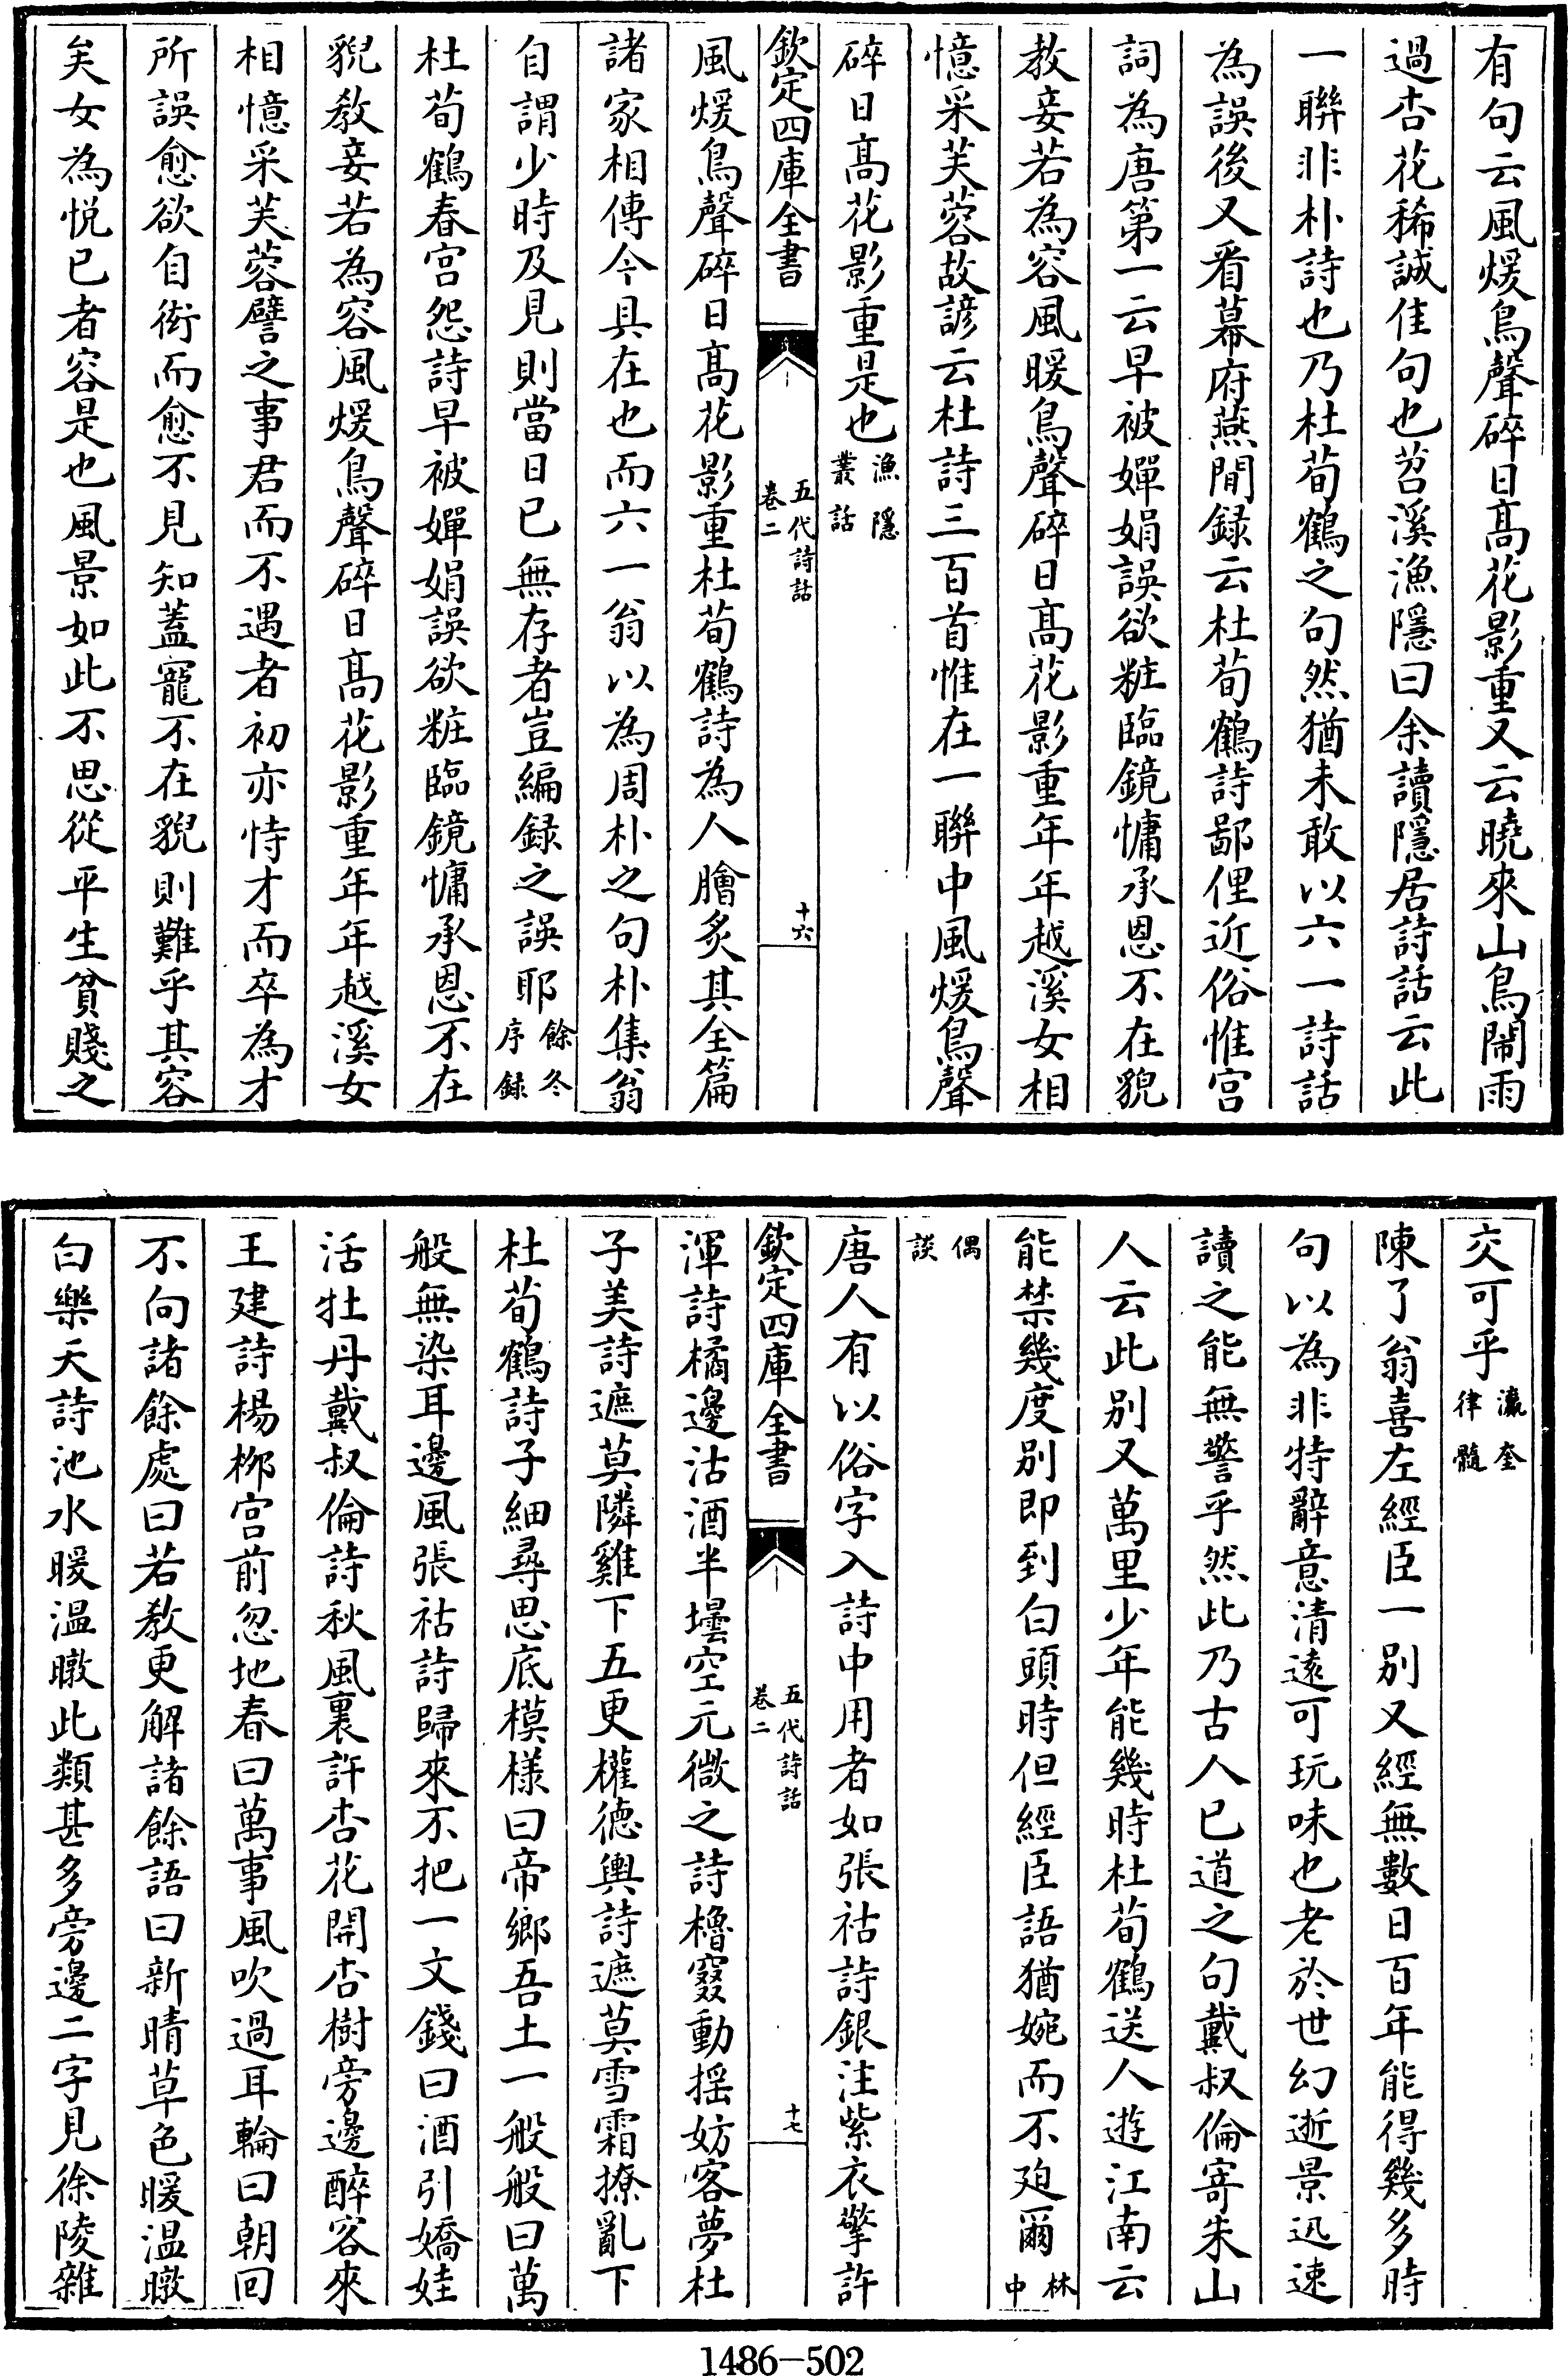 有句云風煖鳥聲碎日髙花影重又云曉來山鳥鬧雨
過杏花稀誠佳句也苕溪漁隱曰余讀隱居詩話云此
一聯非朴詩也乃杜荀鶴之句然猶未敢以六一詩話
為誤後又看幕府燕閒録云杜荀鶴詩鄙俚近俗惟宫
詞為唐第一云早被嬋娟誤欲粧臨鏡慵承恩不在貌
教妾若為容風暖鳥聲碎日髙花影重年年越溪女相
憶采芙蓉故諺云杜詩三百首惟在一聯中風煖鳥聲
碎日髙花影重是也漁隱叢話
欽定四庫全書
五代詩話
卷二
十六
風煖鳥聲碎日髙花影重杜荀鶴詩為人膾炙其全篇
諸家相傳今具在也而六一翁以為周朴之句朴集翁
自謂少時及見則當日已無存者豈編録之誤耶餘冬序録
杜荀鶴春宫怨詩早被嬋娟誤欲粧臨鏡慵承恩不在
貌教妾若為容風煖鳥聲碎日髙花影重年年越溪女
相憶采芙蓉譬之事君而不遇者初亦恃才而卒為才
所誤愈欲自衒而愈不見知蓋寵不在貌則難乎其容
矣女為悦已者容是也風景如此不思從平生貧賤之
交可乎瀛奎律髓
陳了翁喜左經臣一别又經無數日百年能得幾多時
句以為非特辭意清逺可玩味也老於世幻逝景迅速
讀之能無警乎然此乃古人已道之句戴叔倫寄朱山
人云此别又萬里少年能幾時杜荀鶴送人遊江南云
能禁幾度别即到白頭時但經臣語猶婉而不廹爾林中
偶談
唐人有以俗字入詩中用者如張祜詩銀注紫衣擎許
欽定四庫全書
五代詩話
卷二
十七
渾詩橘邊沽酒半壜空元微之詩櫓窡動揺妨客夢杜
子美詩遮莫隣雞下五更權德輿詩遮莫雪霜撩亂下
杜荀鶴詩子細尋思底模様曰帝鄉吾土一般般曰萬
般無染耳邊風張祜詩歸來不把一文錢曰酒引嬌娃
活牡丹戴叔倫詩秋風裏許杏花開杏樹旁邊醉客來
王建詩楊栁宫前忽地春曰萬事風吹過耳輪曰朝回
不向諸餘處曰若教更解諸餘語曰新晴草色暖温暾
白樂天詩池水暖温暾此類甚多旁邊二字見徐陵雜
1486-502